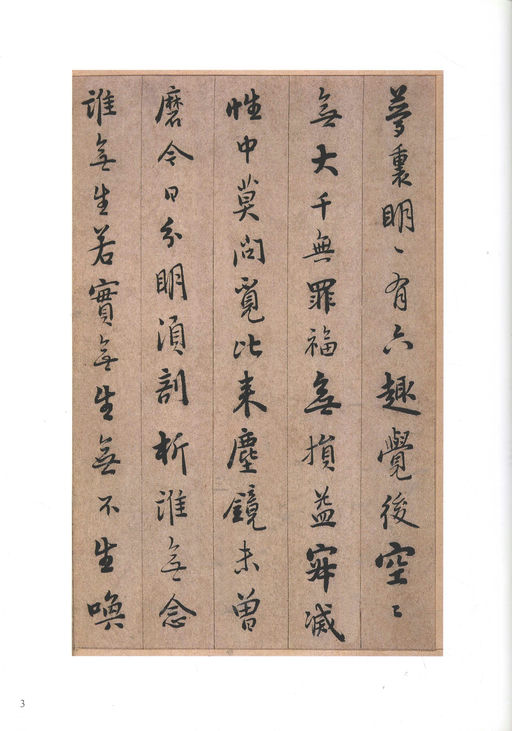 夢裏明〻有六趣覺後空〻
無大千無罪福無損益寂滅
性中莫問覓比来塵鏡未曽
磨今日分明須剖析誰無念
誰無生若實無生無不生喚
3